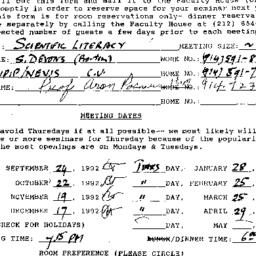 out this form and mail it to the Faculty House
promptly in order to reserve space for your seminar next
This form is for room reservations only- dinner reserva
separately by calling the Faculty House at (212) 854
ected number of guests a few days prior to each meeting
: SCIENTIFIC LITERACY MEETING SIZE: ~
E: S. DEVONS WORK NO.: 914) 591-8
HOME NO.: 914) 591-7
WORK NO.: 914-723
HOME NO.:
MEETING DATES
avoid Thursdays if at all possible-- we most likely will
e or more seminars for Thursday because of the popularity
the most openings are on Mondays & Tuesdays.
SEPTEMBER 24, 1992 DAY, JANUARY 28,
OCTOBER 22, 1992 " DAY, FEBRUARY 25
NOVEMBER 19, 1992 " DAY, MARCH 25
DECEMBER 17, 1992 " DAY, APRIL 29
CHECK FOR HOLIDAYS) DAY, MAY
G TIME: PM /DINNER TIME: 6
ROOM PREFERENCE (PLEASE CIRCLE)